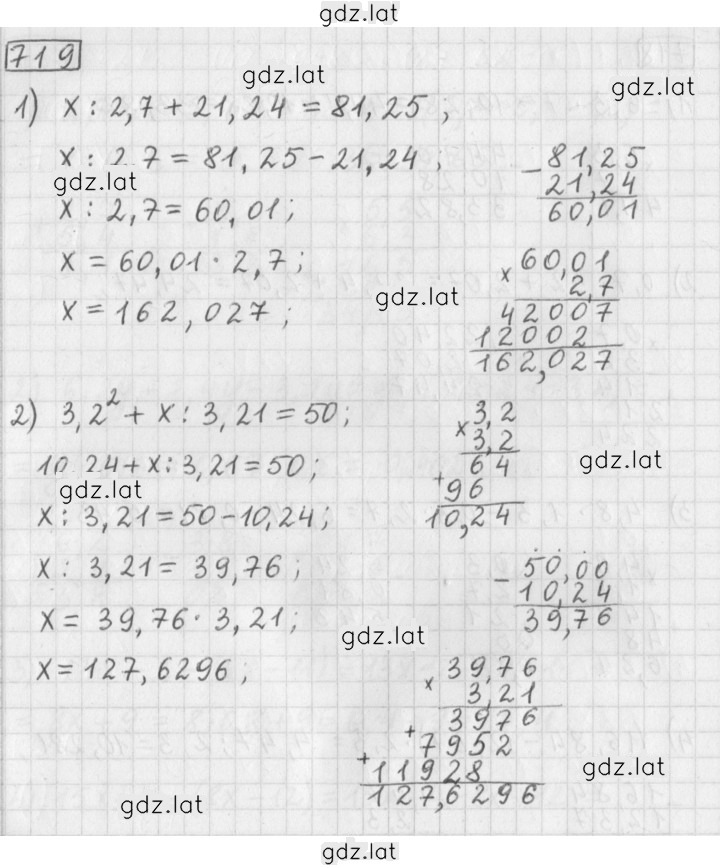 gdz.lat
719
gdz.lat
gdz.lat
1) x : 2,7 + 21,24 = 81,25 ;
x : 2,7 = 81,25 - 21,24 ;
gdz.lat
x : 2,7 = 60,01 ;
x = 60,01 · 2,7 ;
x = 162,027 ;
- 81,25
21,24
60,01
gdz.lat
x 60,01
2,7
42007
12002
162,027
2) 3,2² + x : 3,21 = 50 ;
10,24 + x : 3,21 = 50 ;
gdz.lat
x : 3,21 = 50 - 10,24 ;
x : 3,21 = 39,76 ;
x = 39,76 · 3,21 ;
x = 127,6296 ;
x 3,2
3,2
64
+ 96
10,24
gdz.lat
- 50,00
10,24
39,76
gdz.lat
x 39,76
3,21
3976
+ 7952
+ 11928
127,6296
gdz.lat
gdz.lat
gdz.lat